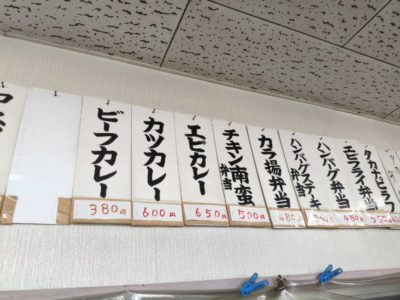 ビーフカレー
380円
カツカレー
600円
エビカレー
650円
チキン南蛮
弁当
500円
カラ揚弁当
480円
ハンバグステーキ
弁当
ハンバグ弁当
エビフライ弁当
480
タカナピラフ